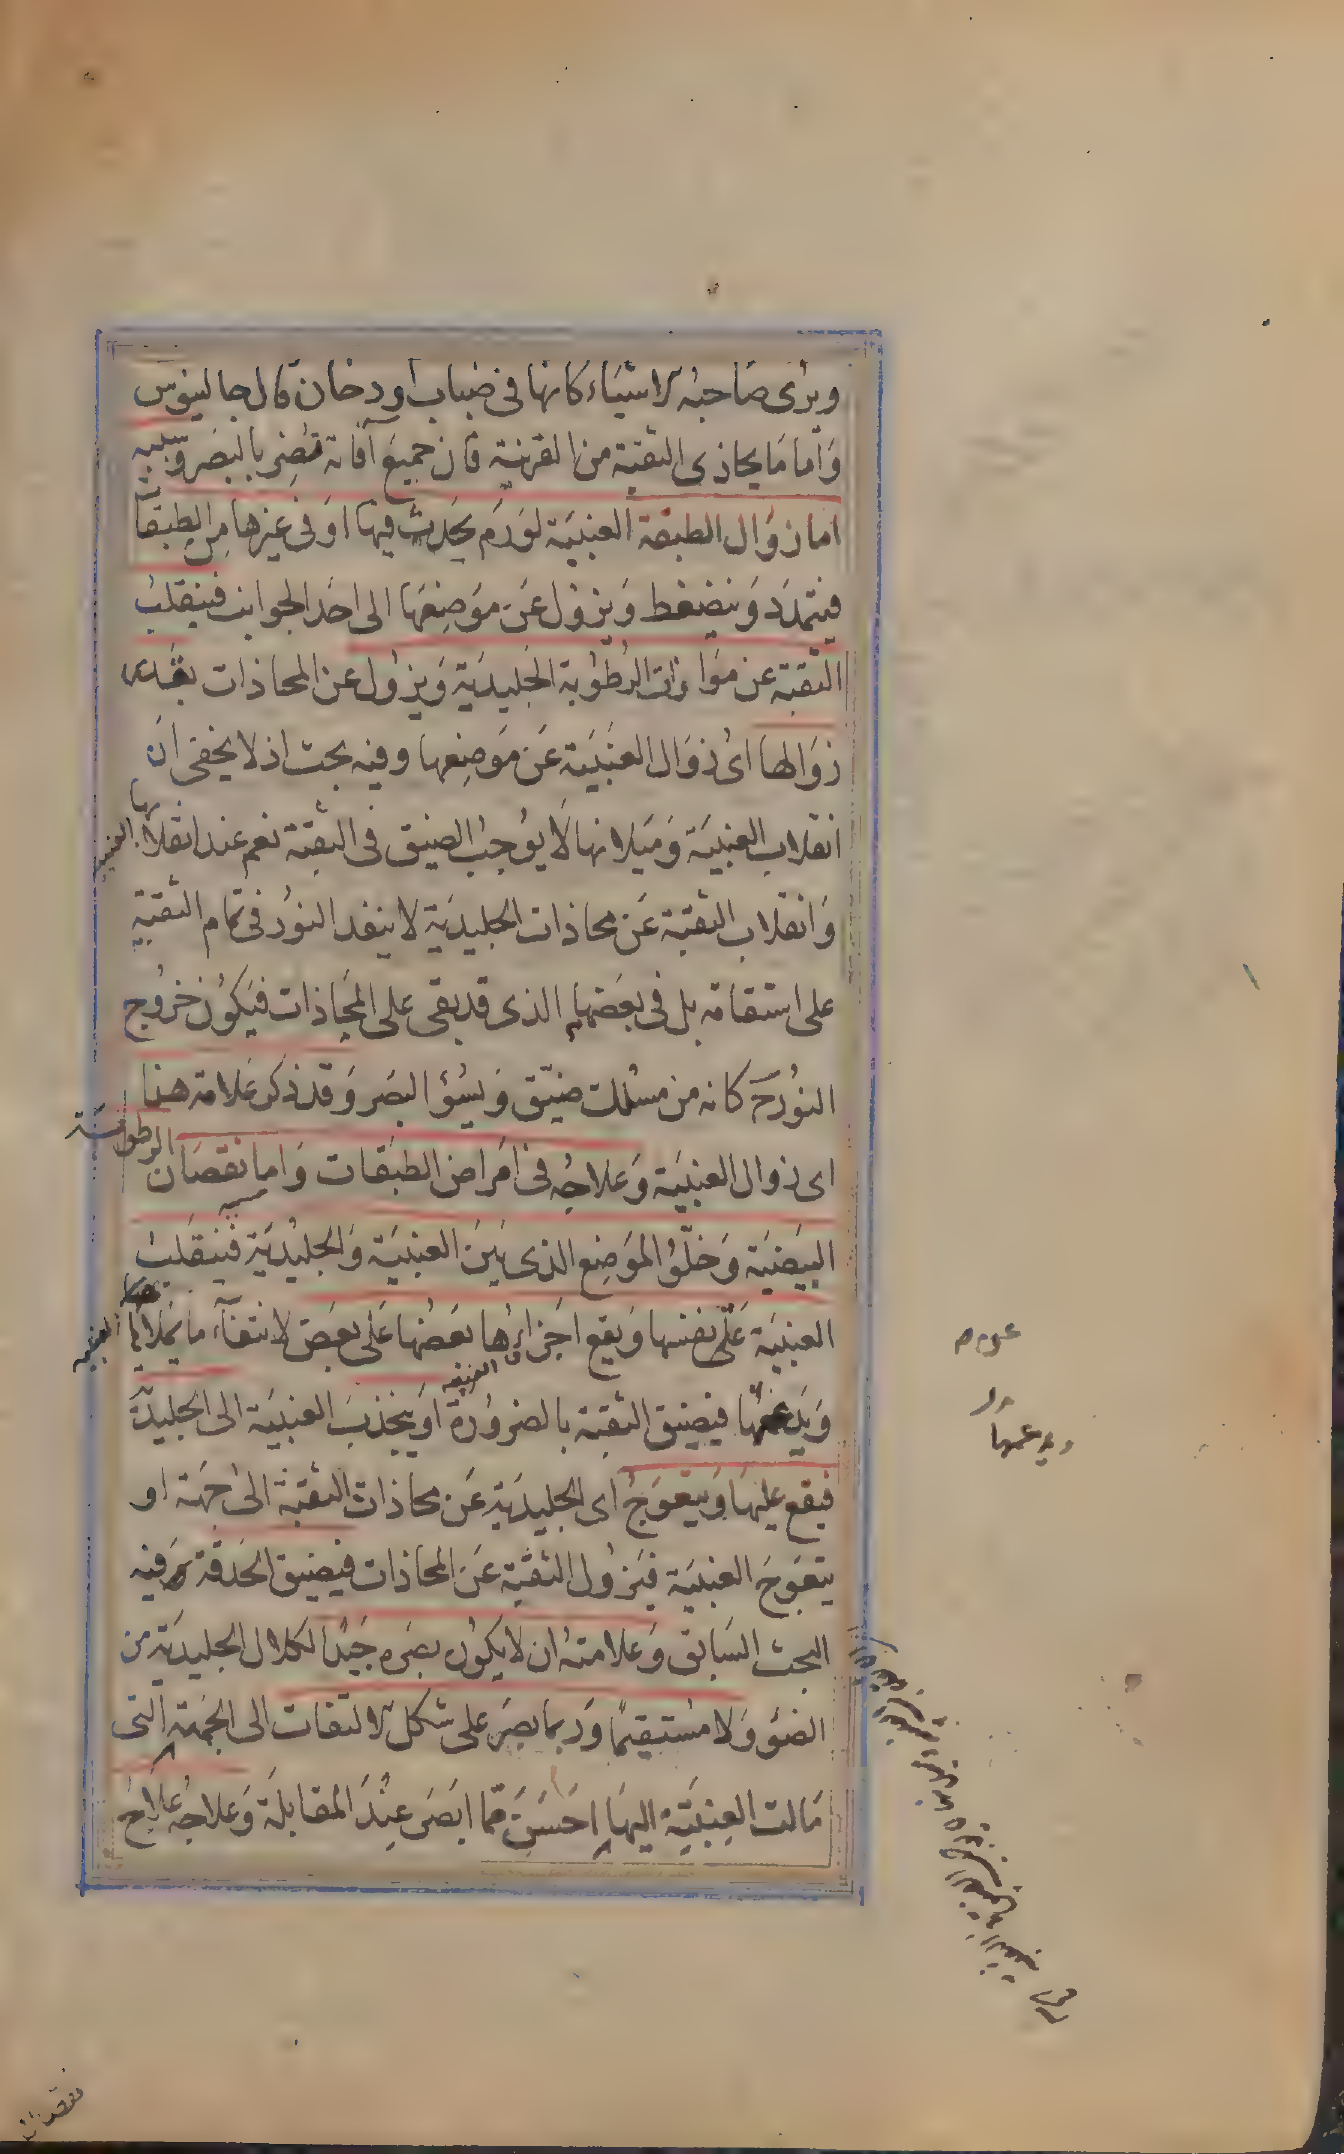 ويرى صاحبه الاشياء كانها فى ضباب او دخان قال جالينوس
واما ما يحاذى الثقبة من القرنية فان جميع آفاته تضر بالبصر وسببه
اما زوال الطبقة العنبية لورم يحدث فيها او فى غيرها من الطبقات
فيتمدد وينضغط ويزول عن موضعها الى احد الجوانب فينقلب
الثقبة عن موازات الرطوبة الجليدية ويزول عن المحاذات بقدر
زوالها اى زوال العنبية عن موضعها وفيه بحث اذ لا يخفى ان
انقلاب العنبية وميلانها لا يوجب الضيق فى الثقبة نعم عند انقلابها
العنبية
وانقلاب الثقبة عن محاذات الجليدية لا ينفد النور فى تمام الثقبة
على استقامة بل فى بعضها الذى قد بقى على المحاذات فيكون خروج
النور ح كانه من مسلك ضيق ويسوء البصر وقد ذكر علامة هذا
اى زوال العنبية وعلاجه فى امراض الطبقات واما نقصان الرطوبة
البيضية وخلو الموضع الذى بين العنبية والجليدية فينقلب
العنبية على نفسها ويقع اجزاؤها بعضها على بعض لانتفاء ما يملاها
العنبية
ويدعمها فيضيق الثقبة بالضرورة او ينجذب العنبية الى الجليدية
فيقع عليها ويتعوج اى الجليدية عن محاذات الثقبة الى جهة او
يتعوج العنبية فيزول الثقبة عن المحاذات فيضيق الحدقة وفيه
البحث السابق وعلامته ان لا يكون بصره جيدا لكلال الجليدية من
الضوء ولا مستقيما وربما بصر على شكل الالتفات الى الجهة التى
مالت العنبية اليها احسن مما ابصر عند المقابلة وعلاجه علاج
ويدعمها
نقصان